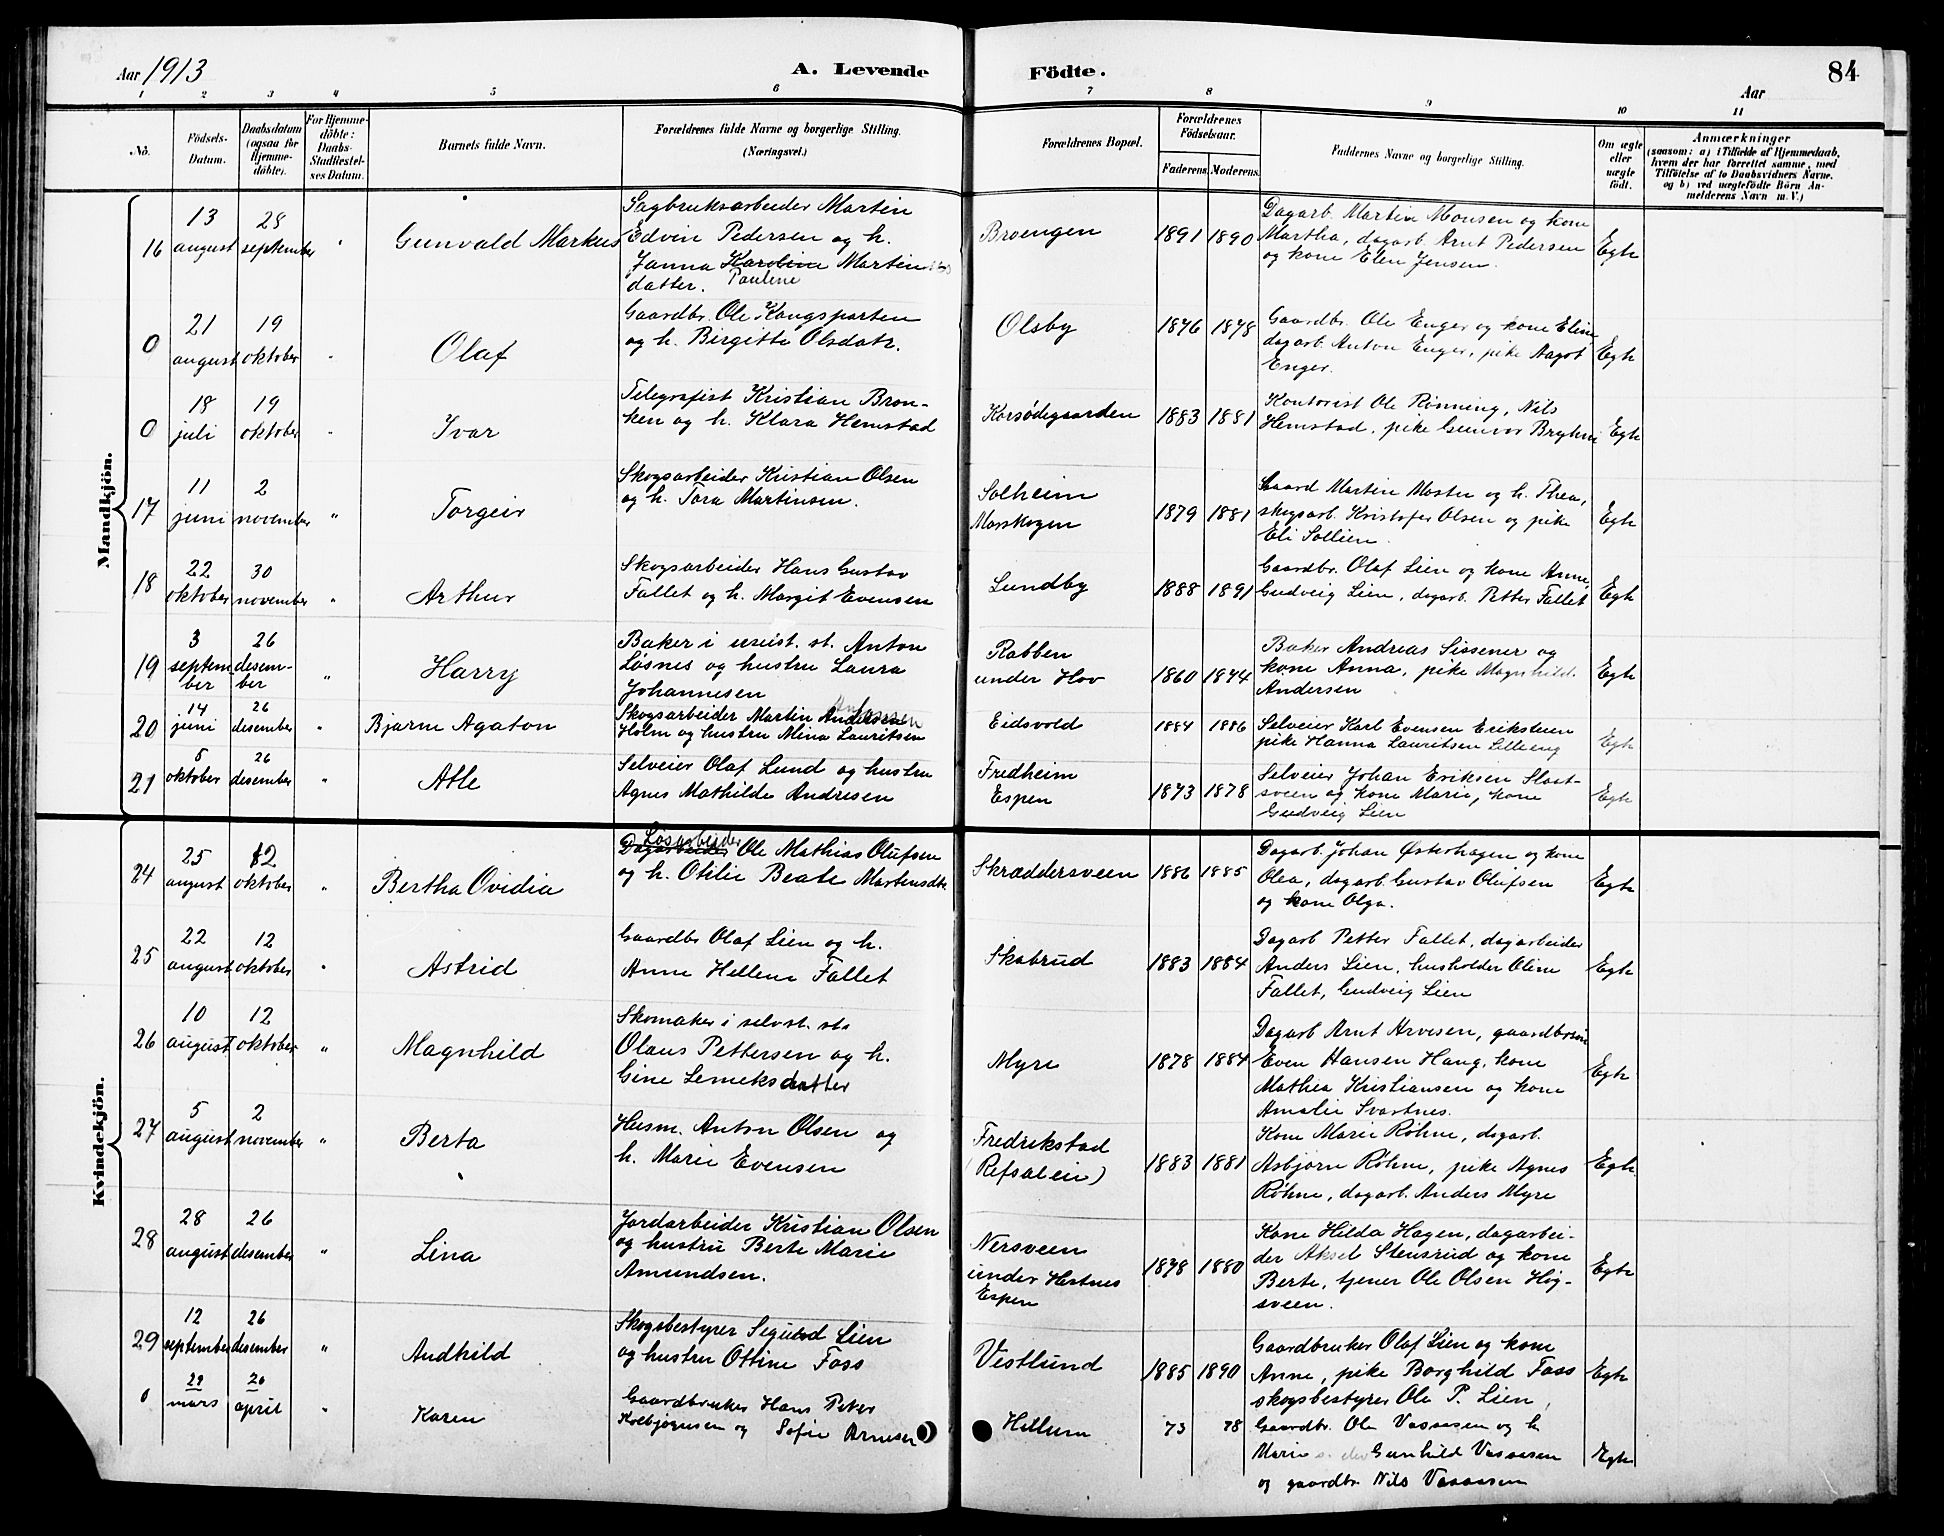 Aar 1913
A. Levende Fødte.
Aar
84
1 2 3 4 5 6 7 8 9 10 11
No.
Fødsels-
Datum.
Daabsdatum
(ogsaa for
Hjemme-
døbte).
For Hjemme-
døbte:
Daabs-
Stadfæstel-
ses Datum.
Barnets fulde Navn.
Forældrenes fulde Navne og borgerlige Stilling.
(Næringsvei.)
Forældrenes Bopæl.
Forældrenes
Fødselsaar.
Faderens. Moderens.
Faddernes Navne og borgerlige Stilling.
Om ægte
eller
uægte
født.
Anmærkninger
(saasom: a) i Tilfælde af Hjemmedaab,
hvem der har forrettet samme, med
Tilføielse af to Daabsvidners Navne.
og b) ved uægtefødte Børn An-
melderens Navn m.V.)
Mandkjøn.
16
13
august
september
"
Gunvald Markus
Sagbruksarbeider Martin
Edvin Pedersen og h.
Janna Karoline Martins
datter. Pauline
Broengen
1891 1890
Dagarb. Martin Monsen og kone
Martha, dagarb. Arnt Pedersen
og kone Elen Jensen.
Egte
0
21
august
19
oktober
"
Olaf
Gaardbr. Ole Kongsparten
og h. Birgitte Olsdatr.
Olsby
1876 1878
Gaardbr. Ole Enger og kone Eline
dagarb. Anton Enger, pike Aagot
Enger.
Egte
0
18
juli
19
oktober
"
Ivar
Telegrafist Kristian Bron-
ken og h. Klara Hemstad
Korsødegaarden
1883 1881
Kontorist Ole Rønning, Nils
Hemstad, pike Gunvor Bryhni
Egte
17
11
juni
2
november
"
Torgeir
Skogsarbeider Kristian Olsen
og h. Tora Martinsen.
Solheim
Morskogen
1879 1881
Gaard Martin Moster og h. Thea,
skogsarb. Kristofer Olsen og pike
Eli Sollien.
Egte
18
22
oktober
30
november
"
Arthur
Skogsarbeider Hans Gustav
Fallet og h. Margit Evensen
Lundby
1888 1891
Gaardbr. Olaf Lien og kone Anne,
Gudveig Lien, dagarb. Petter Fallet
Egte
19
3
septem
ber
26
desem-
ber
"
Harry
Baker i st. Anton
Løsnes og hustru Laura
Johannesen
Rabben
under Hov
1860 1874
Baker Andreas Sissener og
kone Anna, pike Magnhild
Andersen
Egte
20
14
juni
26
desember
"
Bjarne Agaton
Skogsarbeider Martin Andersen
Holm og hustru Mina Lauritsen
Eidsvold
1884 1886
Selveier Karl Evensen Eriksteen
pike Hanna Lauritsen Lilleeng
Egte
21
5
oktober
26
desember
"
Atle
Selveier Olaf Lund og hustru
Agnes Mathilde Andresen
Fredheim
Espen
1873 1878
Selveier Johan Eriksen Slaat-
sveen og kone Marie, kone
Gudveig Lien
Egte
Kvindekjøn.
24
25
august
12
oktober
"
Bertha Ovidia
Løsarbeider
Dagarbeider Ole Mathias Olufsen
og h. Otilie Beate Martensdtr
Skræddersveen
1886 1885
Dagarb. Johan Østerhagen og kone
Olea, dagarb. Gustav Olufsen
og kone Olga.
Egte
25
22
august
12
oktober
"
Astrid
Gaardbr Olaf Lien og h.
Anne Hellene Fallet
Skabrud
1883 1884
Dagarb Petter Fallet, dagarbeider
Anders Lien, husholder Oline
Fallet, Gudveig Lien
Egte
26
10
august
12
oktober
"
Magnhild
Skomaker i selvst. st.
Olaus Pettersen og h.
Gine Lemeksdatter
Myre
1878 1884
Dagarb Arnt Arvesen, gaardbruk
Even Hansen Haug, kone
Mathea Kristiansen og kone
Amalie Svartnes.
Egte
27
5
august
2
november
"
Berta
Husm. Anton Olsen og
h. Marie Evensen
Fredrikstad
(Refsaleie)
1883 1881
Kone Marie Røhne, dagarb.
Asbjørn Røhne, pike Agnes
Røhne, dagarb. Anders Myre
Egte
28
28
august
26
desember
"
Lina
Jordarbeider Kristian Olsen
og hustru Berte Marie
Amundsen.
Nersveen
under Hestnes
Espen
1878 1880
Kone Hilda Hagen, dagarbei-
der Aksel Stensrud og kone
Berte, tjener Ole Olsen Høg-
sveen.
Egte
29
12
september
26
desember
"
Audhild
Skogsbestyrer Sigurd Lien
og hustru Ottine Foss
Vestlund
1885 1890
Gaardbruker Olaf Lien og kone
Anne, pike Borghild Foss
skogsbestyrer Ole P. Lien,
Egte
0
29
mars
20
april
"
Karen
Gaardbruker Hans Peter
Kolbjørnsen og Sofie Arnesen
Hillum
73 78
Gaardbr. Ole Vassasen og h
Marie Gunhild Vaaasen
og gaardbr Nils Vaaasen
Egte